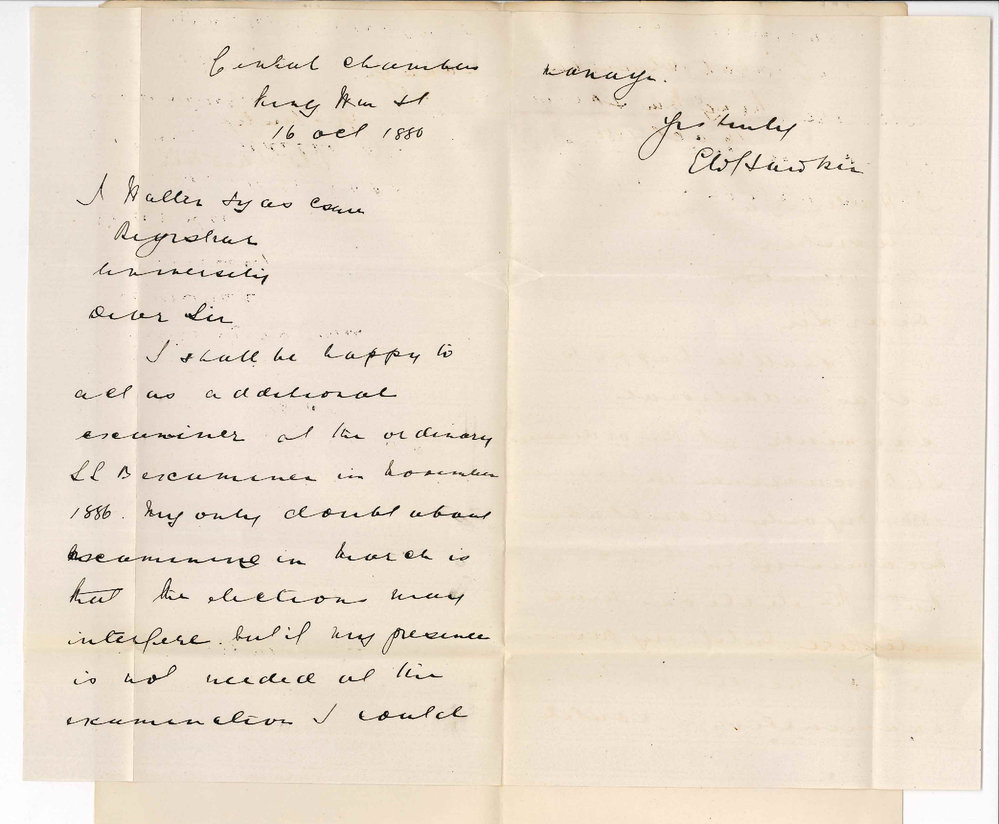 Central Chambers
King Wm St
16 Oct 1886
J Walter Tyas Esqre
Registrar
University
Dear Sir
I shall be happy to
act as additional
examiner at the ordinary
LL B examiner in November
1886. My only doubt about
examining in March is
that the elections may
interfere. but if my presence
is not needed at the
examination I could
manage.
Yrs truly